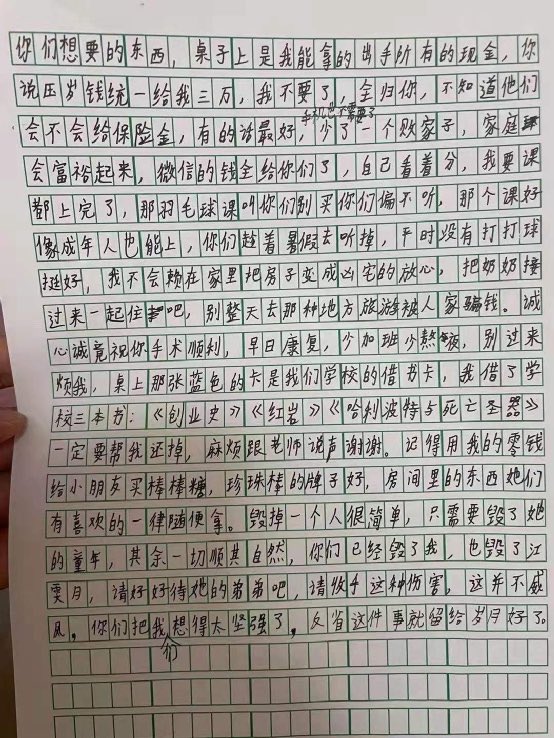 你们想要的东西，桌子上是我能拿的出手所有的现金，你
说压岁钱统一给我三万，我不要了，全归你，不知道他们
手机也不需要了
会不会给保险金，有的话最好，少了一个败家子，家庭
会富裕起来，微信的钱全给你们了，自己看着分，我要课
都上完了，那羽毛球课叫你们别买你们偏不听，那个课好
像成年人也能上，你们趁着暑假去听掉，平时没有打打球
挺好，我不会赖在家里把房子变成凶宅的放心，把奶奶接
过来一起住吧，别整天去那种地方旅游被人家骗钱。诚
心诚意祝你手术顺利，早日康复，少加班少熬夜，别过来
烦我，桌上那张蓝色的卡是我们学校的借书卡，我借了学
校三本书：《创业史》《红岩》《哈利波特与死亡圣器》
一定要帮我还掉，麻烦跟老师说声谢谢。记得用我的零钱
给小朋友买棒棒糖，珍珠棒的牌子好，房间里的东西她们
有喜欢的一律随便拿。毁掉一个人很简单，只需要毁了她
的童年，其余一切顺其自然，你们已经毁了我，也毁了江
月，请好好待她的弟弟吧，请收手这种伤害，这并不威
风，你们把我们想得太坚强了，反省这件事就留给岁月好了。